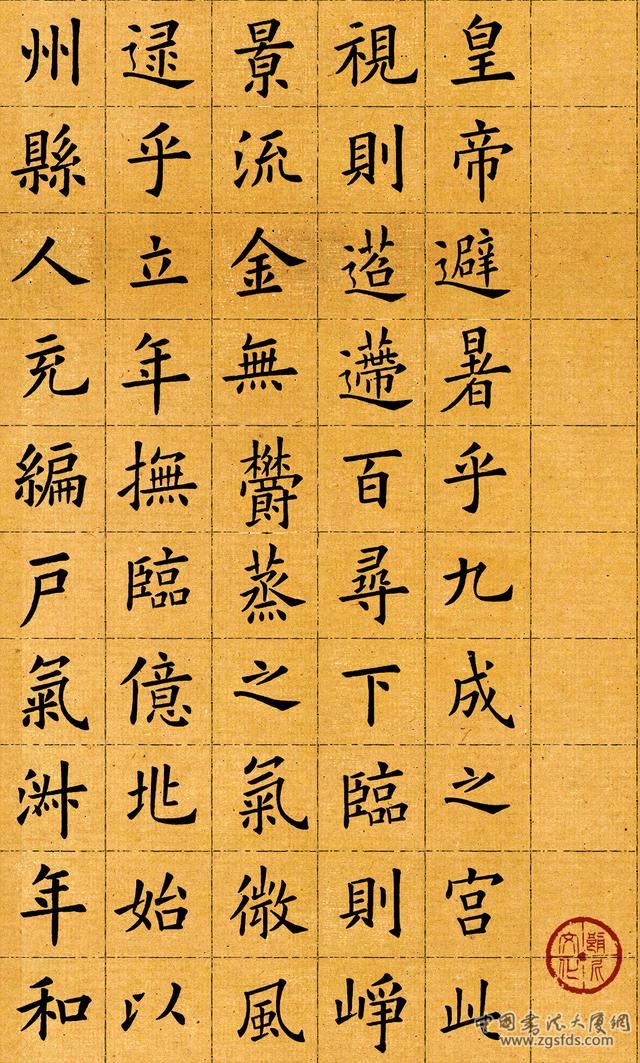 皇帝避暑乎九成之宮此
視則迢遰百尋下臨則崢
景流金無欝蒸之氣微風
逯乎立年撫臨億兆始以
州縣人充編戶氣淑年和
中国书法大厦网
www.zgsfds.com